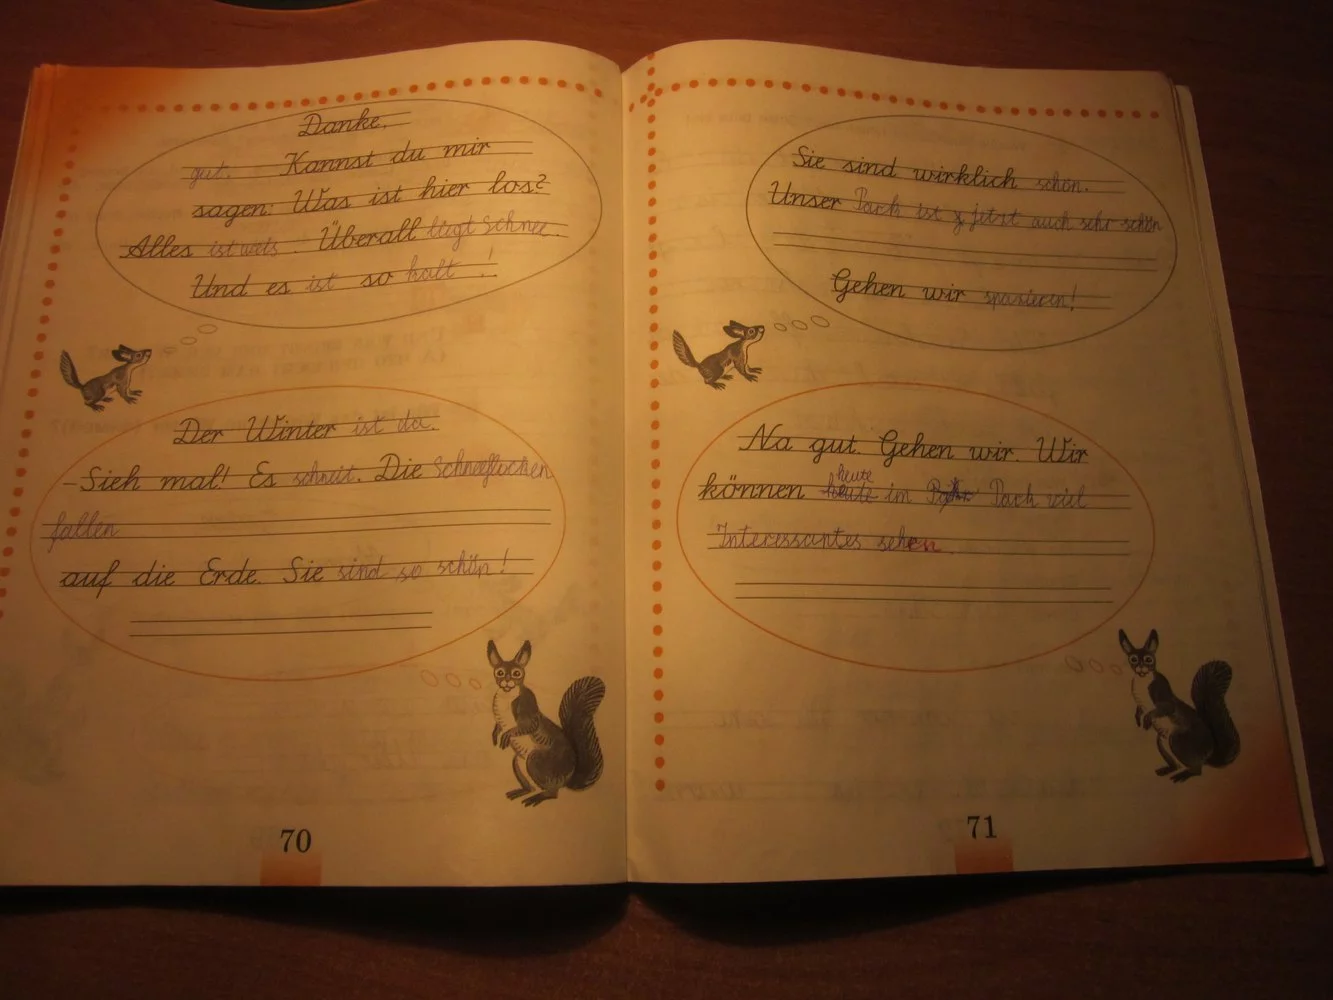 Danke,
gut. Kannst du mir
sagen: Was ist hier los?
Alles ist weis. Überall liegt Schnee.
Und es ist so kalt!
Der Winter ist da.
-Sieh mal! Es schneit. Die Schneeflocken
fallen
auf die Erde. Sie sind so schön!
70
Sie sind wirklich schön.
Unser Park ist jetzt auch sehr schön
Gehen wir spazieren!
Na gut. Gehen wir. Wir
heute
können heute im Park viel
Interessantes sehen.
71